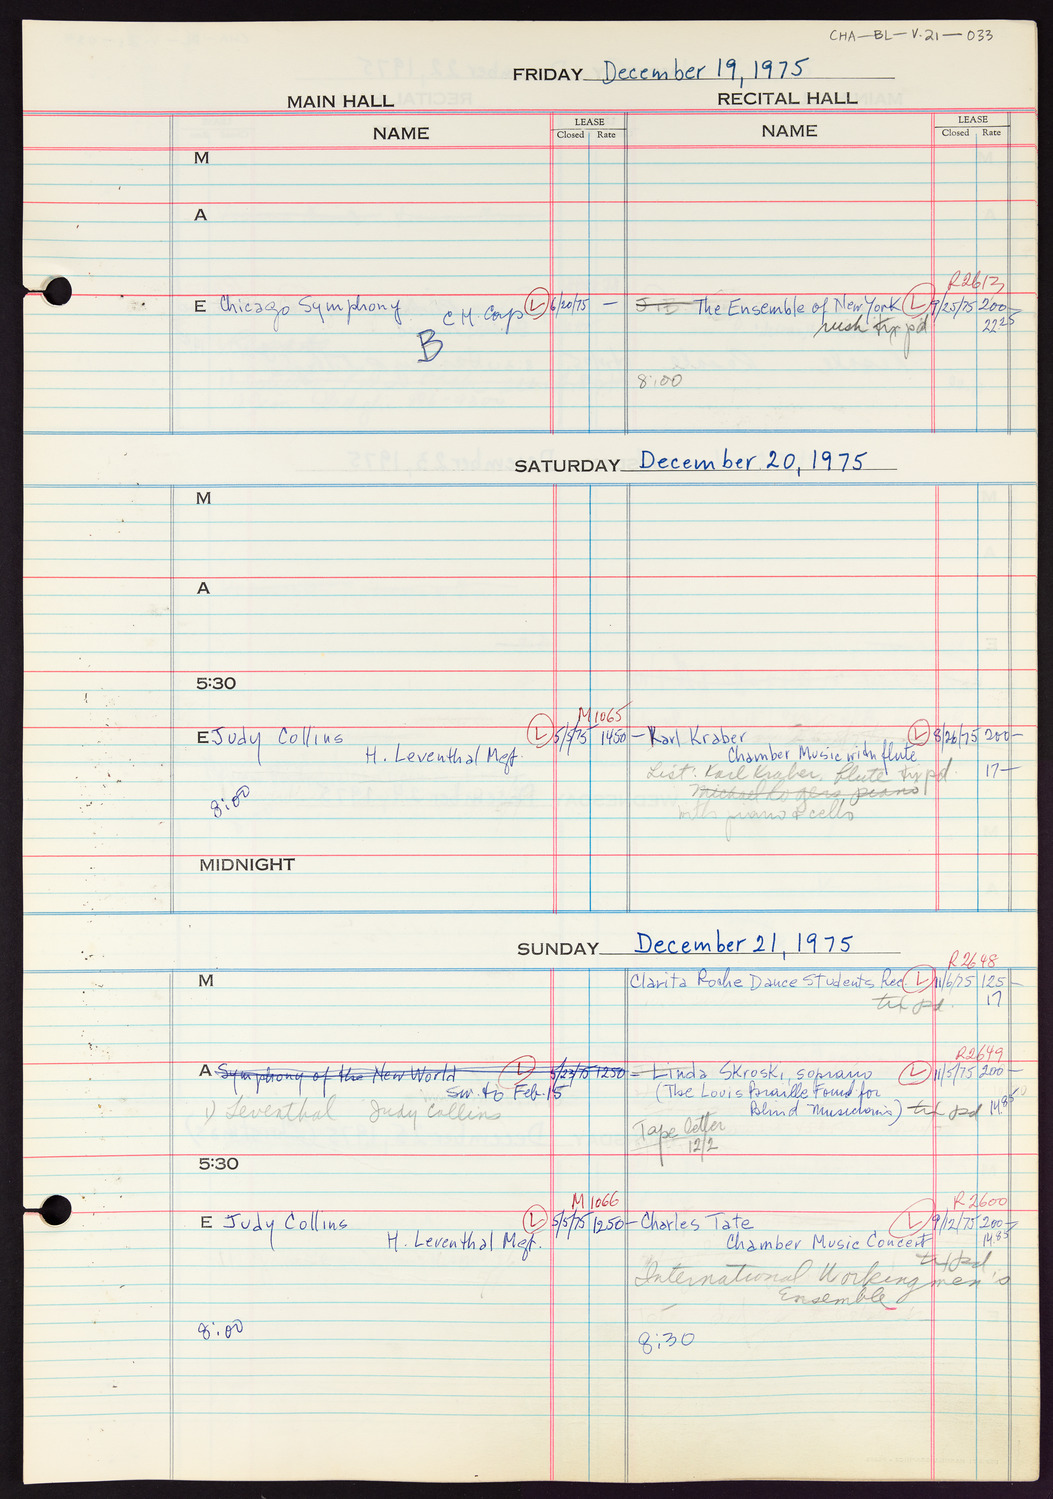 CHA-BL-V.21-033
FRIDAY December 19, 1975
MAIN HALL RECITAL HALL
NAME LEASE Closed Rate NAME LEASE Closed Rate
M
A
R2613
E Chicago Symphony L 6/20/75 — The Ensemble of New York L 9/25/75 200—
C H Corp rush tix pd 22.25
B
8:00
SATURDAY December 20, 1975
M
A
5:30
M1065
E Judy Collins L 5/5/75 1450 — Karl Kraber L 8/26/75 200—
H. Leventhal Mgt. Chamber Music with flute
List: Karl Kraber, flute tix pd. 17—
Michael Rogers piano
8:00 with piano & cello
MIDNIGHT
SUNDAY December 21, 1975
R2648
M Clarita Roche Dance Students Rec. L 11/6/75 125—
tix pd. 17
R2649
A Symphony of the New World L 5/23/75 1250 — Linda Skroski, soprano L 11/5/75 200—
Sw. to Feb. 15 (The Louis Braille Found for
1) Leventhal Judy Collins Blind Musicians) tix pd 14.85
Tape letter
12/2
5:30
M1066 R2600
E Judy Collins L 5/5/75 1250 — Charles Tate L 9/12/75 200—
H. Leventhal Mgt. Chamber Music Concert 14.85
tix pd
International Workingmen's
Ensemble
8:00 8:30